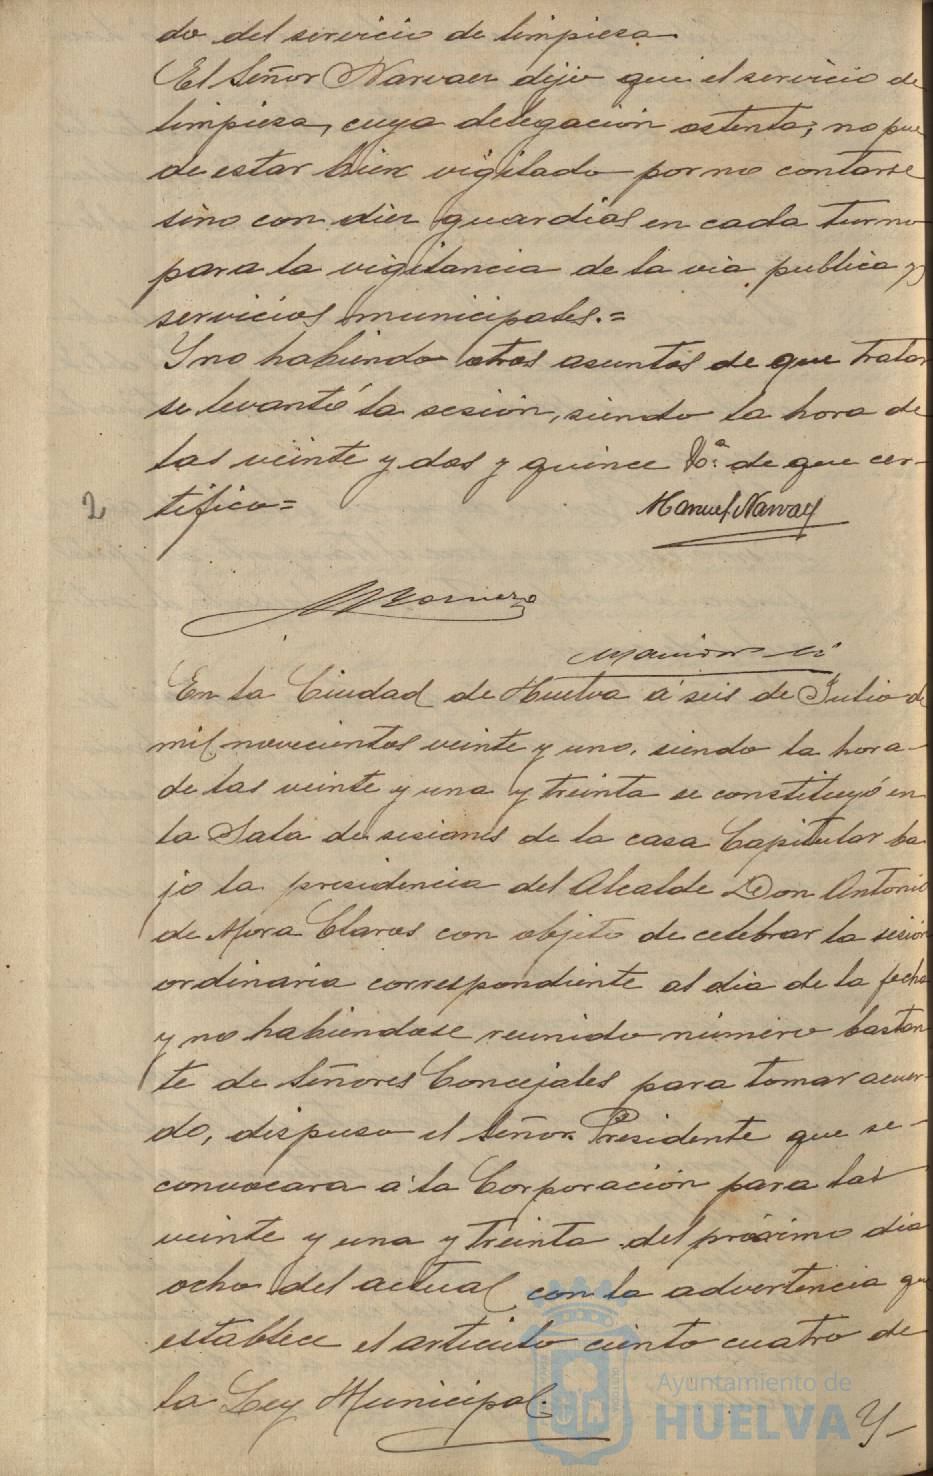 do del servicio de limpieza.
El Señor Narvaez dijo que el servicio de
limpieza, cuya delegación ostenta, no pue
de estar bien vigilado por no contarse
sino con diez guardias en cada turno
para la vigilancia de la via publica y
servicios municipales.=
Y no habiendo otros asuntos de que tratar
se levantó la sesión, siendo la hora de
las veinte y dos y quince de que cer-
2 tifico=
Manuel Narvaez
En la Ciudad de Huelva á seis de Julio de
mil novecientos veinte y uno, siendo la hora-
de las veinte y una y treinta se constituyó en
la Sala de sesiones de la casa Capitular ba
jo la presidencia del Alcalde Don Antonio
de Mora Claros con objeto de celebrar la sesión
ordinaria correspondiente al dia de la fecha
y no habiendose reunido número bastan
te de Señores Concejales para tomar acuer-
do, dispuso el Señor Presidente que se-
convocara á la Corporación para las
veinte y una y treinta del próximo dia
ocho del actual con la advertencia que
establece el articulo ciento cuatro de
la Ley Municipal.
Y-
Ayuntamiento de
HUELVA